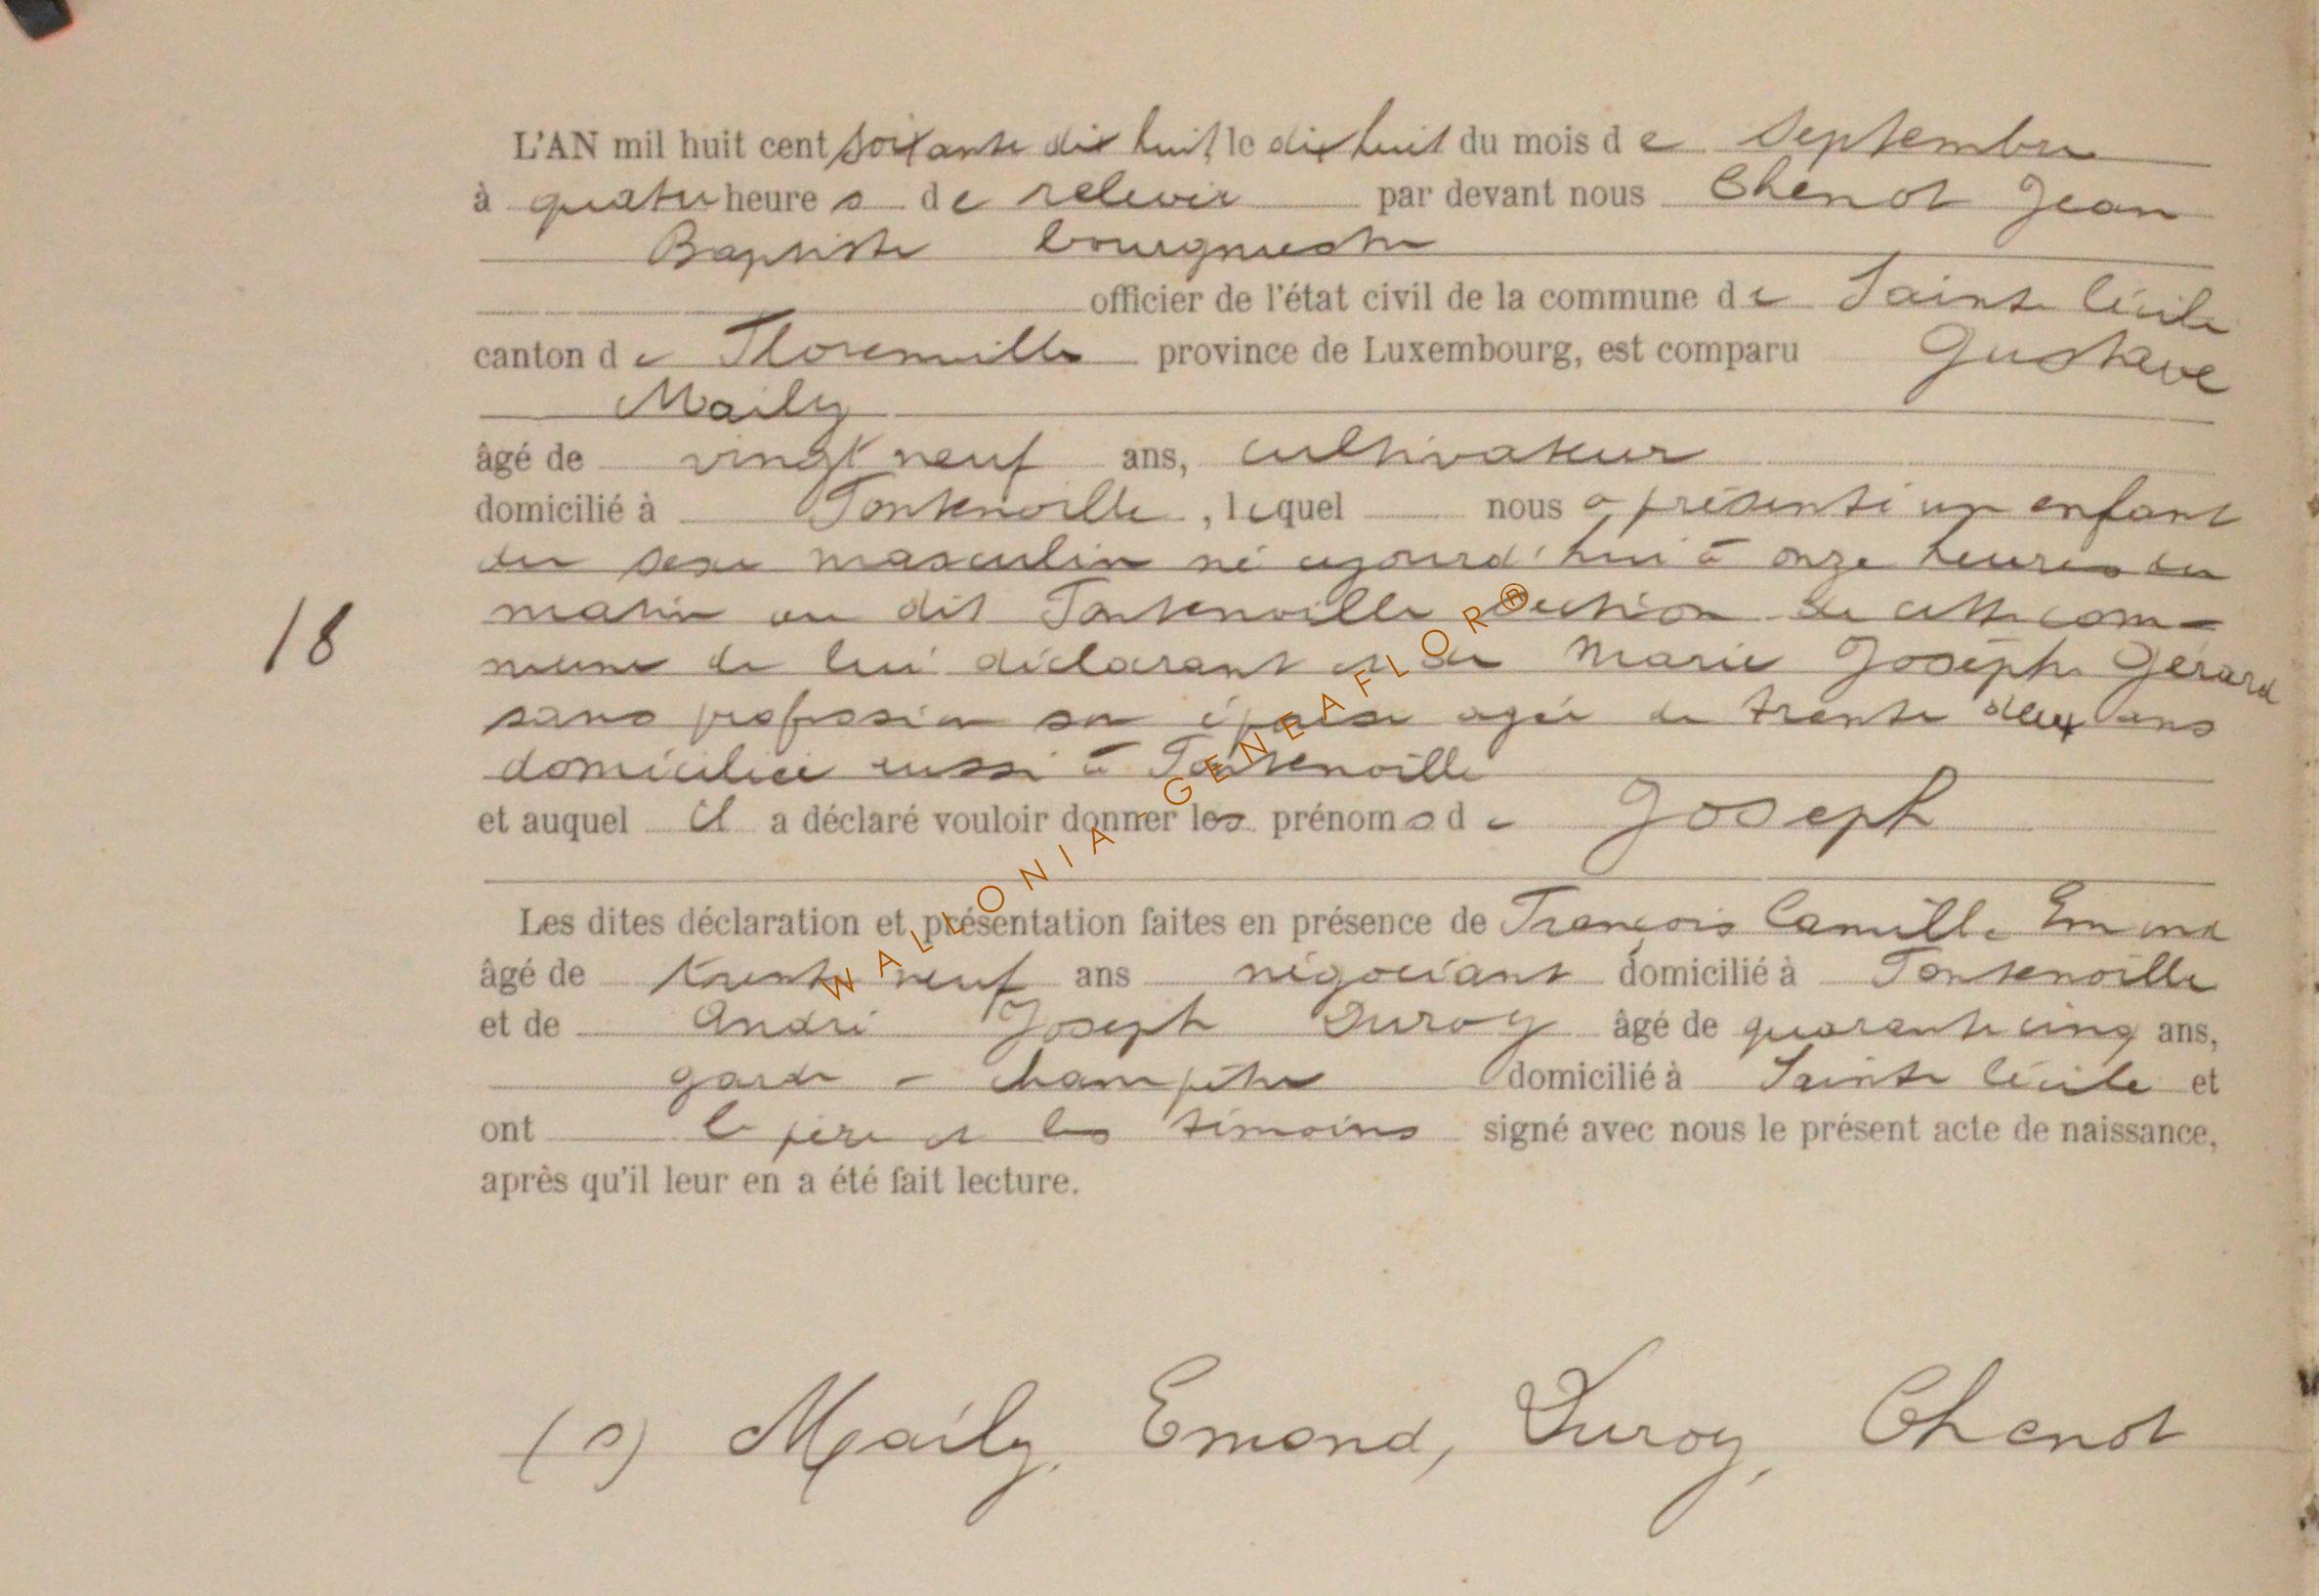 L'AN mil huit cent soixante dix huit, le dix huit du mois de Septembre
à quatre heures de relevée par devant nous Chenot Jean
Baptiste bourgmestre
officier de l'état civil de la commune de Sainte Cécile
canton de Florenville province de Luxembourg, est comparu Gustave
Maily
âgé de vingt neuf ans, cultivateur
domicilié à Fontenoille, lequel nous a présenté un enfant
du sexe masculin né aujourd'hui à onze heures du
matin au dit Fontenoille section de cette com-
mune de lui déclarant et de Marie Josèphe Gérard
sans profession son épouse agée de trente deux ans
domiciliée aussi à Fontenoille
et auquel il a déclaré vouloir donner les prénoms de Joseph
Les dites déclaration et présentation faites en présence de François Camille Emond
âgé de trente neuf ans négociant domicilié à Fontenoille
et de André Joseph Duroy âgé de quarante cinq ans,
garde - champêtre domicilié à Sainte Cécile et
ont le père et les témoins signé avec nous le présent acte de naissance,
après qu'il leur en a été fait lecture.
18
(s) Maily, Emond, Duroy, Chenot
WALLONIA - GENEAFLOR®